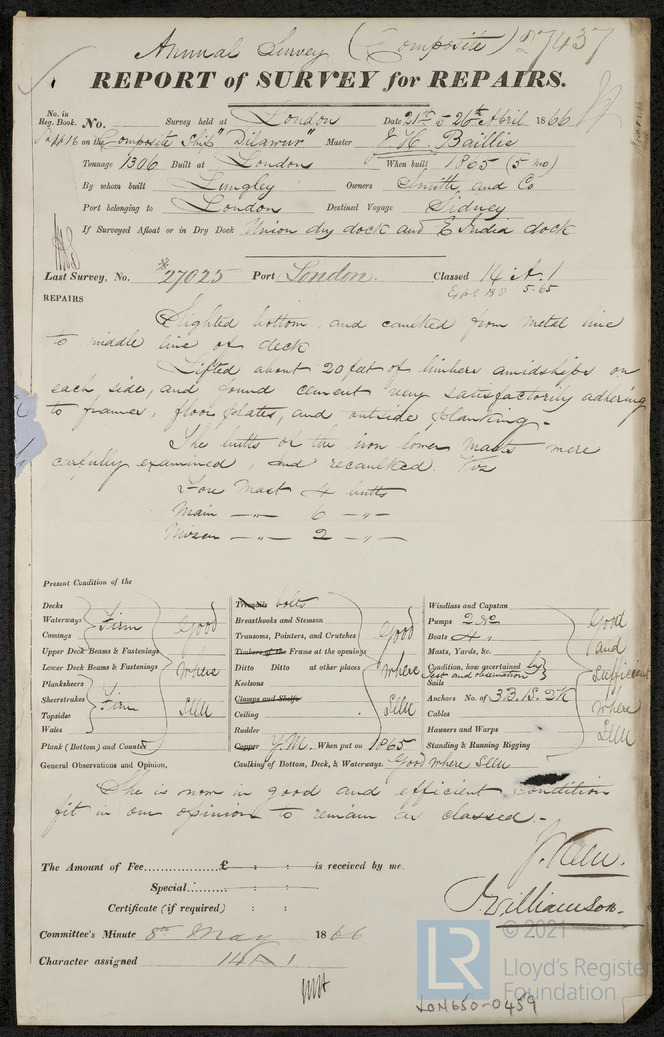 Annual Survey (Composite) 27437
REPORT of SURVEY for REPAIRS.
No. in Reg. Book. No. Survey held at London Date 21st to 26th April 1866
on the Composite Ship "Dilawur" Master J H. Baillie
Tonnage 1306 Built at London When built 1865 (5 mo)
By whom built Lungley Owners Smith and Co
Port belonging to London Destined Voyage Sidney
If Surveyed Afloat or in Dry Dock Union dry dock and E India dock
Last Survey, No. *27025 Port London. Classed 14 A.1
5.65
REPAIRS
Slighted bottom, and caulked from metal line
to middle line of deck
Lifted about 20 feet of limbers amidships on
each side, and found cement very satisfactorily adhering
to frames, floor plates, and outside planking.-
The butts of the iron lower masts were
carfully examined, and recaulked. Viz
Fore Mast 4 butts
Main —„— 6 —„—
Mizen —„— 2 —„—
Present Condition of the
Decks
Waterways Firm Good
Comings
Upper Deck Beams & Fastenings
Lower Deck Beams & Fastenings where
Planksheers
Sheerstrakes Firm
Topsides seen
Wales
Plank (Bottom) and Counter
Treenails bolts
Breasthooks and Stemson
Transoms, Pointers, and Crutches Good
Timbers of the Frame at the openings
Ditto Ditto at other places where
Keelsons
Clamps and Shelfs
Ceiling seen
Rudder
Copper Y.M. When put on 1865
Windlass and Capstan
Pumps 2 No Good
Boats 4 „
Masts, Yards, &c. and
Condition, how ascertained by
test and observation sufficient
Sails
Anchors No. of 3.B. 1S. 2K where
Cables
Hawsers and Warps seen
Standing & Running Rigging
General Observations and Opinion, Caulking of Bottom, Deck, & Waterways. Good where seen
She is now in good and efficient condition
fit in our opinion to remain as classed.-
The Amount of Fee............£ : : is received by me
J. Keen.
Special...... : :
J. Williamson.
Certificate (if required) : :
Committee's Minute 8th May 1866
Character assigned 14 A 1
LR © 2021
Lloyd's Register
Foundation
LON650-0459